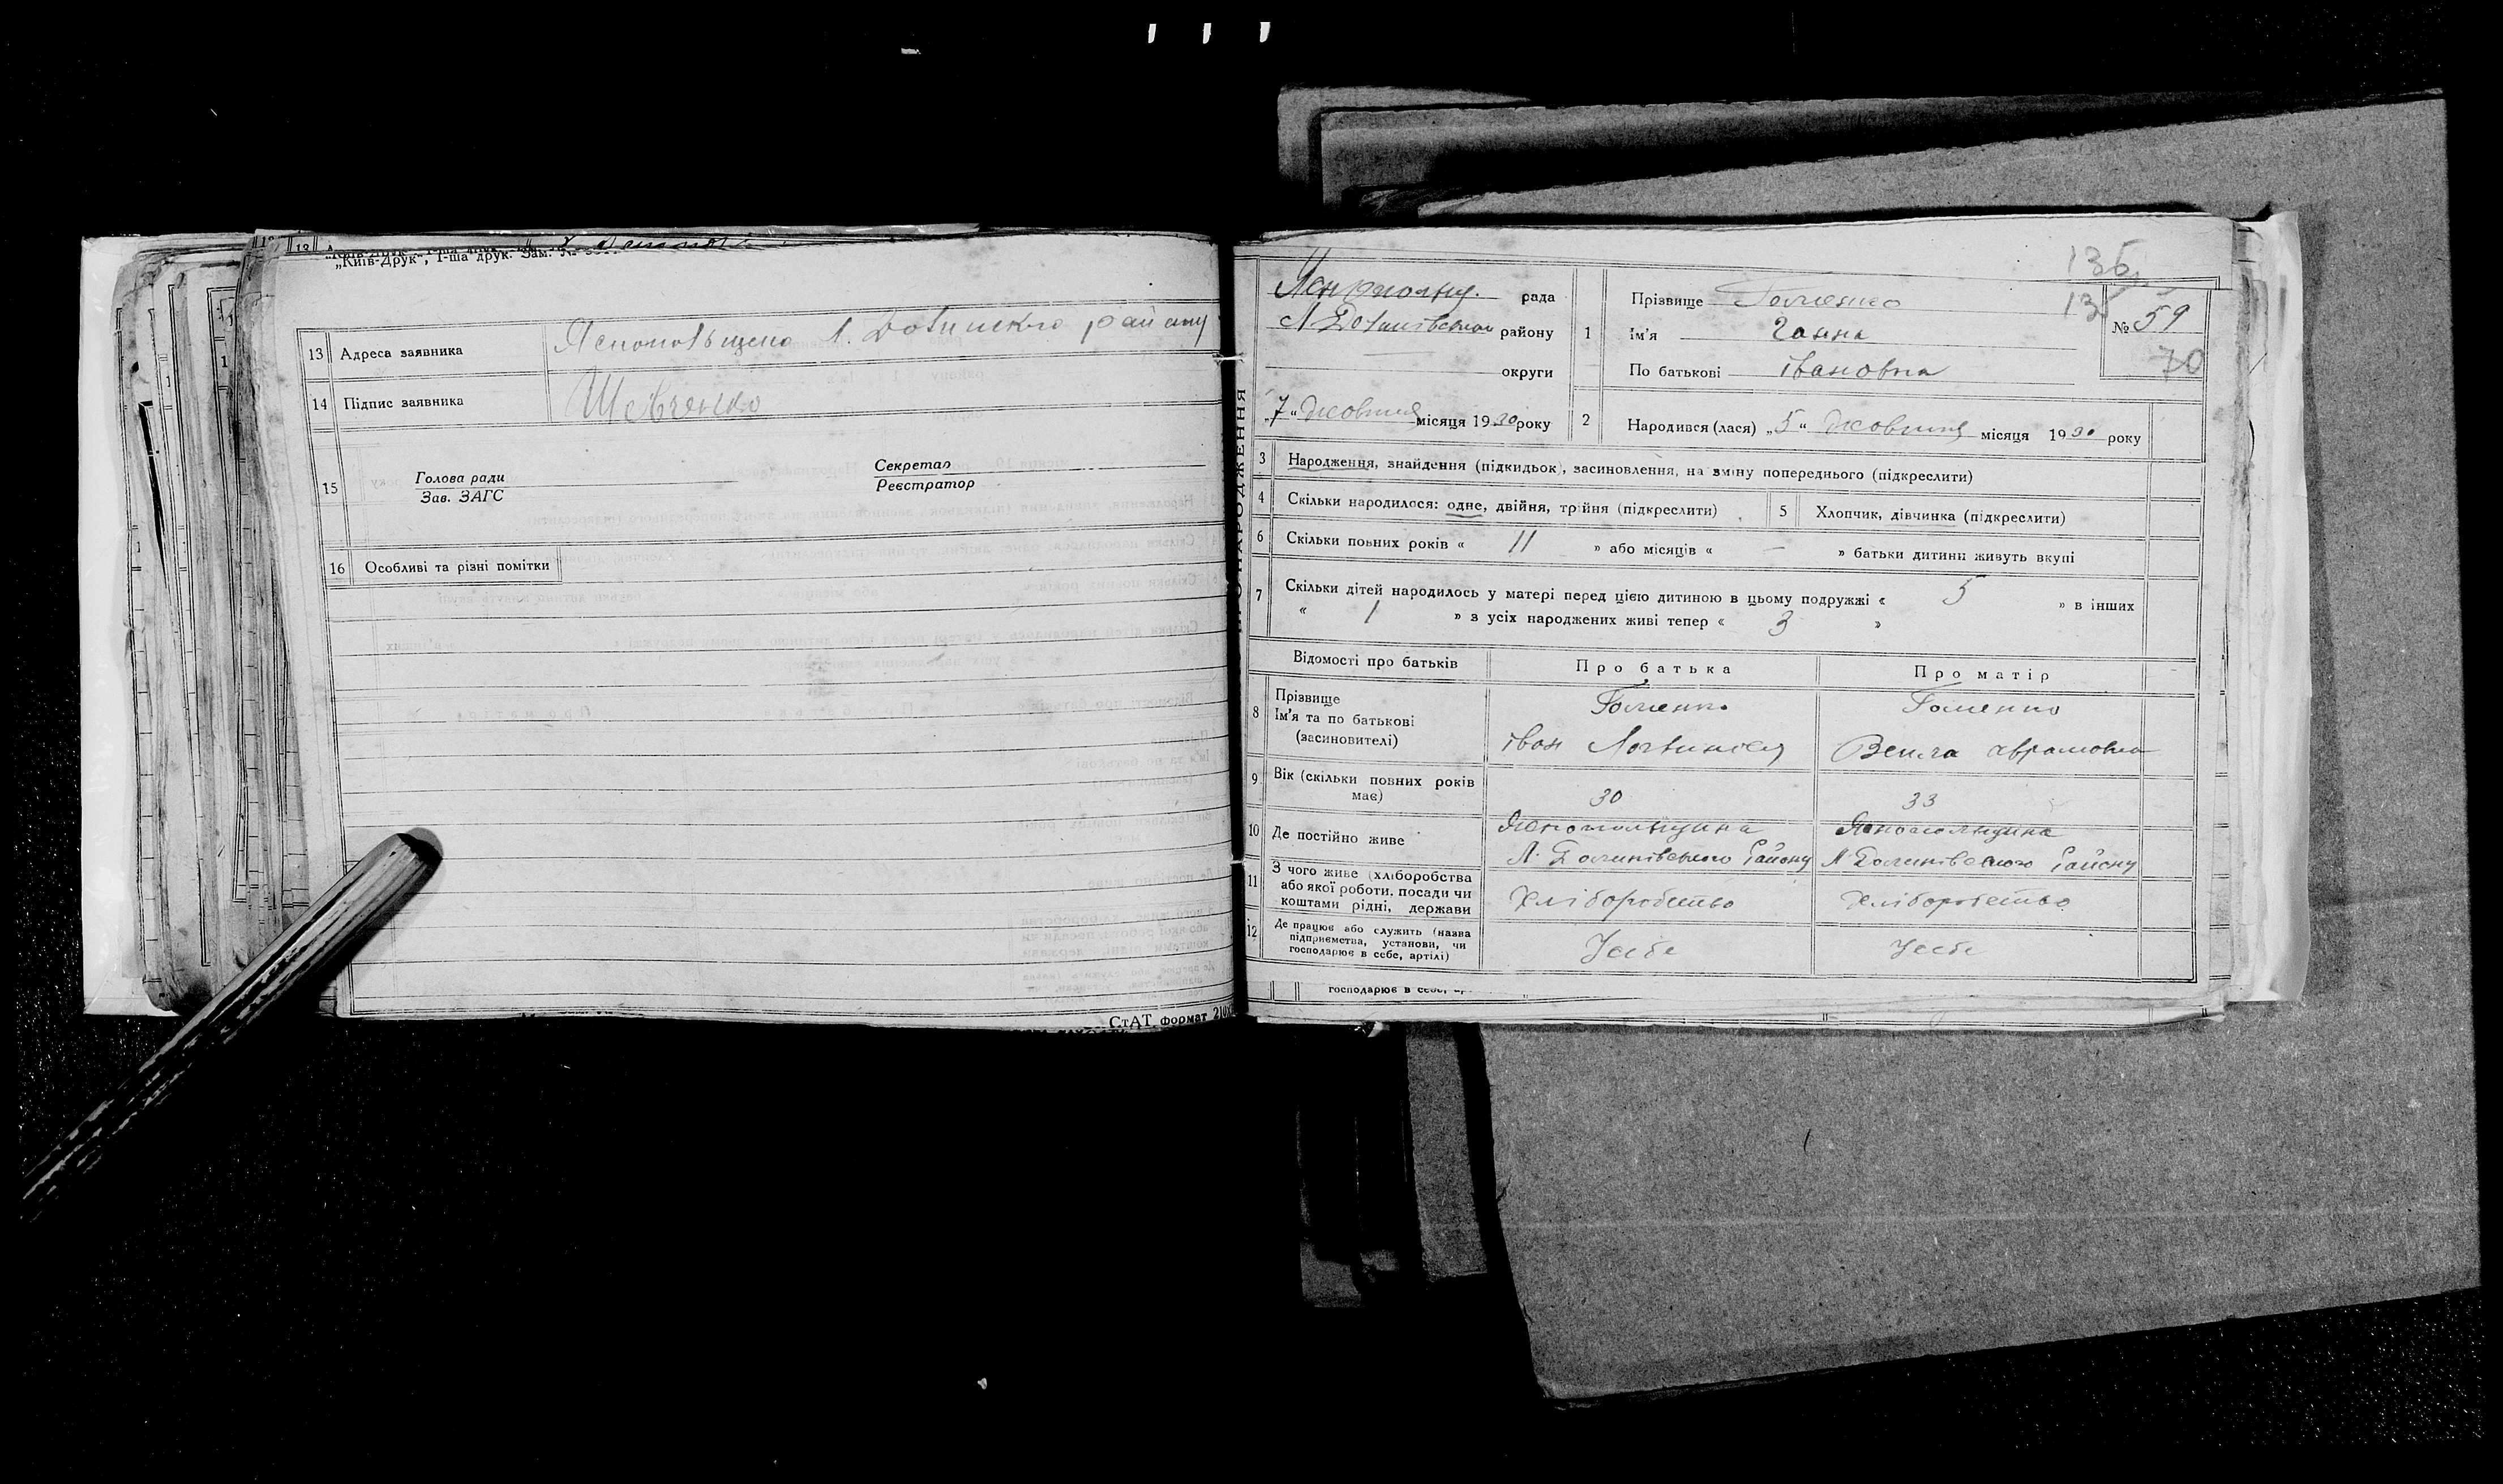 „Київ-Друк", 1-ша друк. Зам. №
13 Адреса заявника
14 Підпис заявника Шевченко
15 Голова ради
Зав. ЗАГС
Секретар
Реєстратор
16 Особливі та різні помітки
СтАТ формат 210
135
рада
району
округи
„7" жовтня місяця 1930 року
1 Прізвище
Ім'я Ганна
По батькові івановна
№ 59
70
2 Народився (лася) „5" жовтня місяця 1930 року
3 Народження, знайдення (підкидьок), засиновлення, на зміну попереднього (підкреслити)
4 Скільки народилося: одне, двійня, трійня (підкреслити)
5 Хлопчик, дівчинка (підкреслити)
6 Скільки повних років « 11 » або місяців « — » батьки дитини живуть вкупі
7 Скільки дітей народилось у матері перед цією дитиною в цьому подружжі « 5 » в інших
« 1 » з усіх народжених живі тепер « 3 »
Відомості про батьків Про батька Про матір
8 Прізвище
Ім'я та по батькові
(засиновителі)
іван
аврамовна
9 Вік (скільки повних років
має) 30 33
10 Де постійно живе
району району
11 З чого живе (хліборобства
або якої роботи, посади чи
коштами рідні, держави
хліборобство хліборобство
12 Де працює або служить (назва
підприємства, установи, чи
господарює в себе, артілі)
Усебе Усебе
господарює в себе,